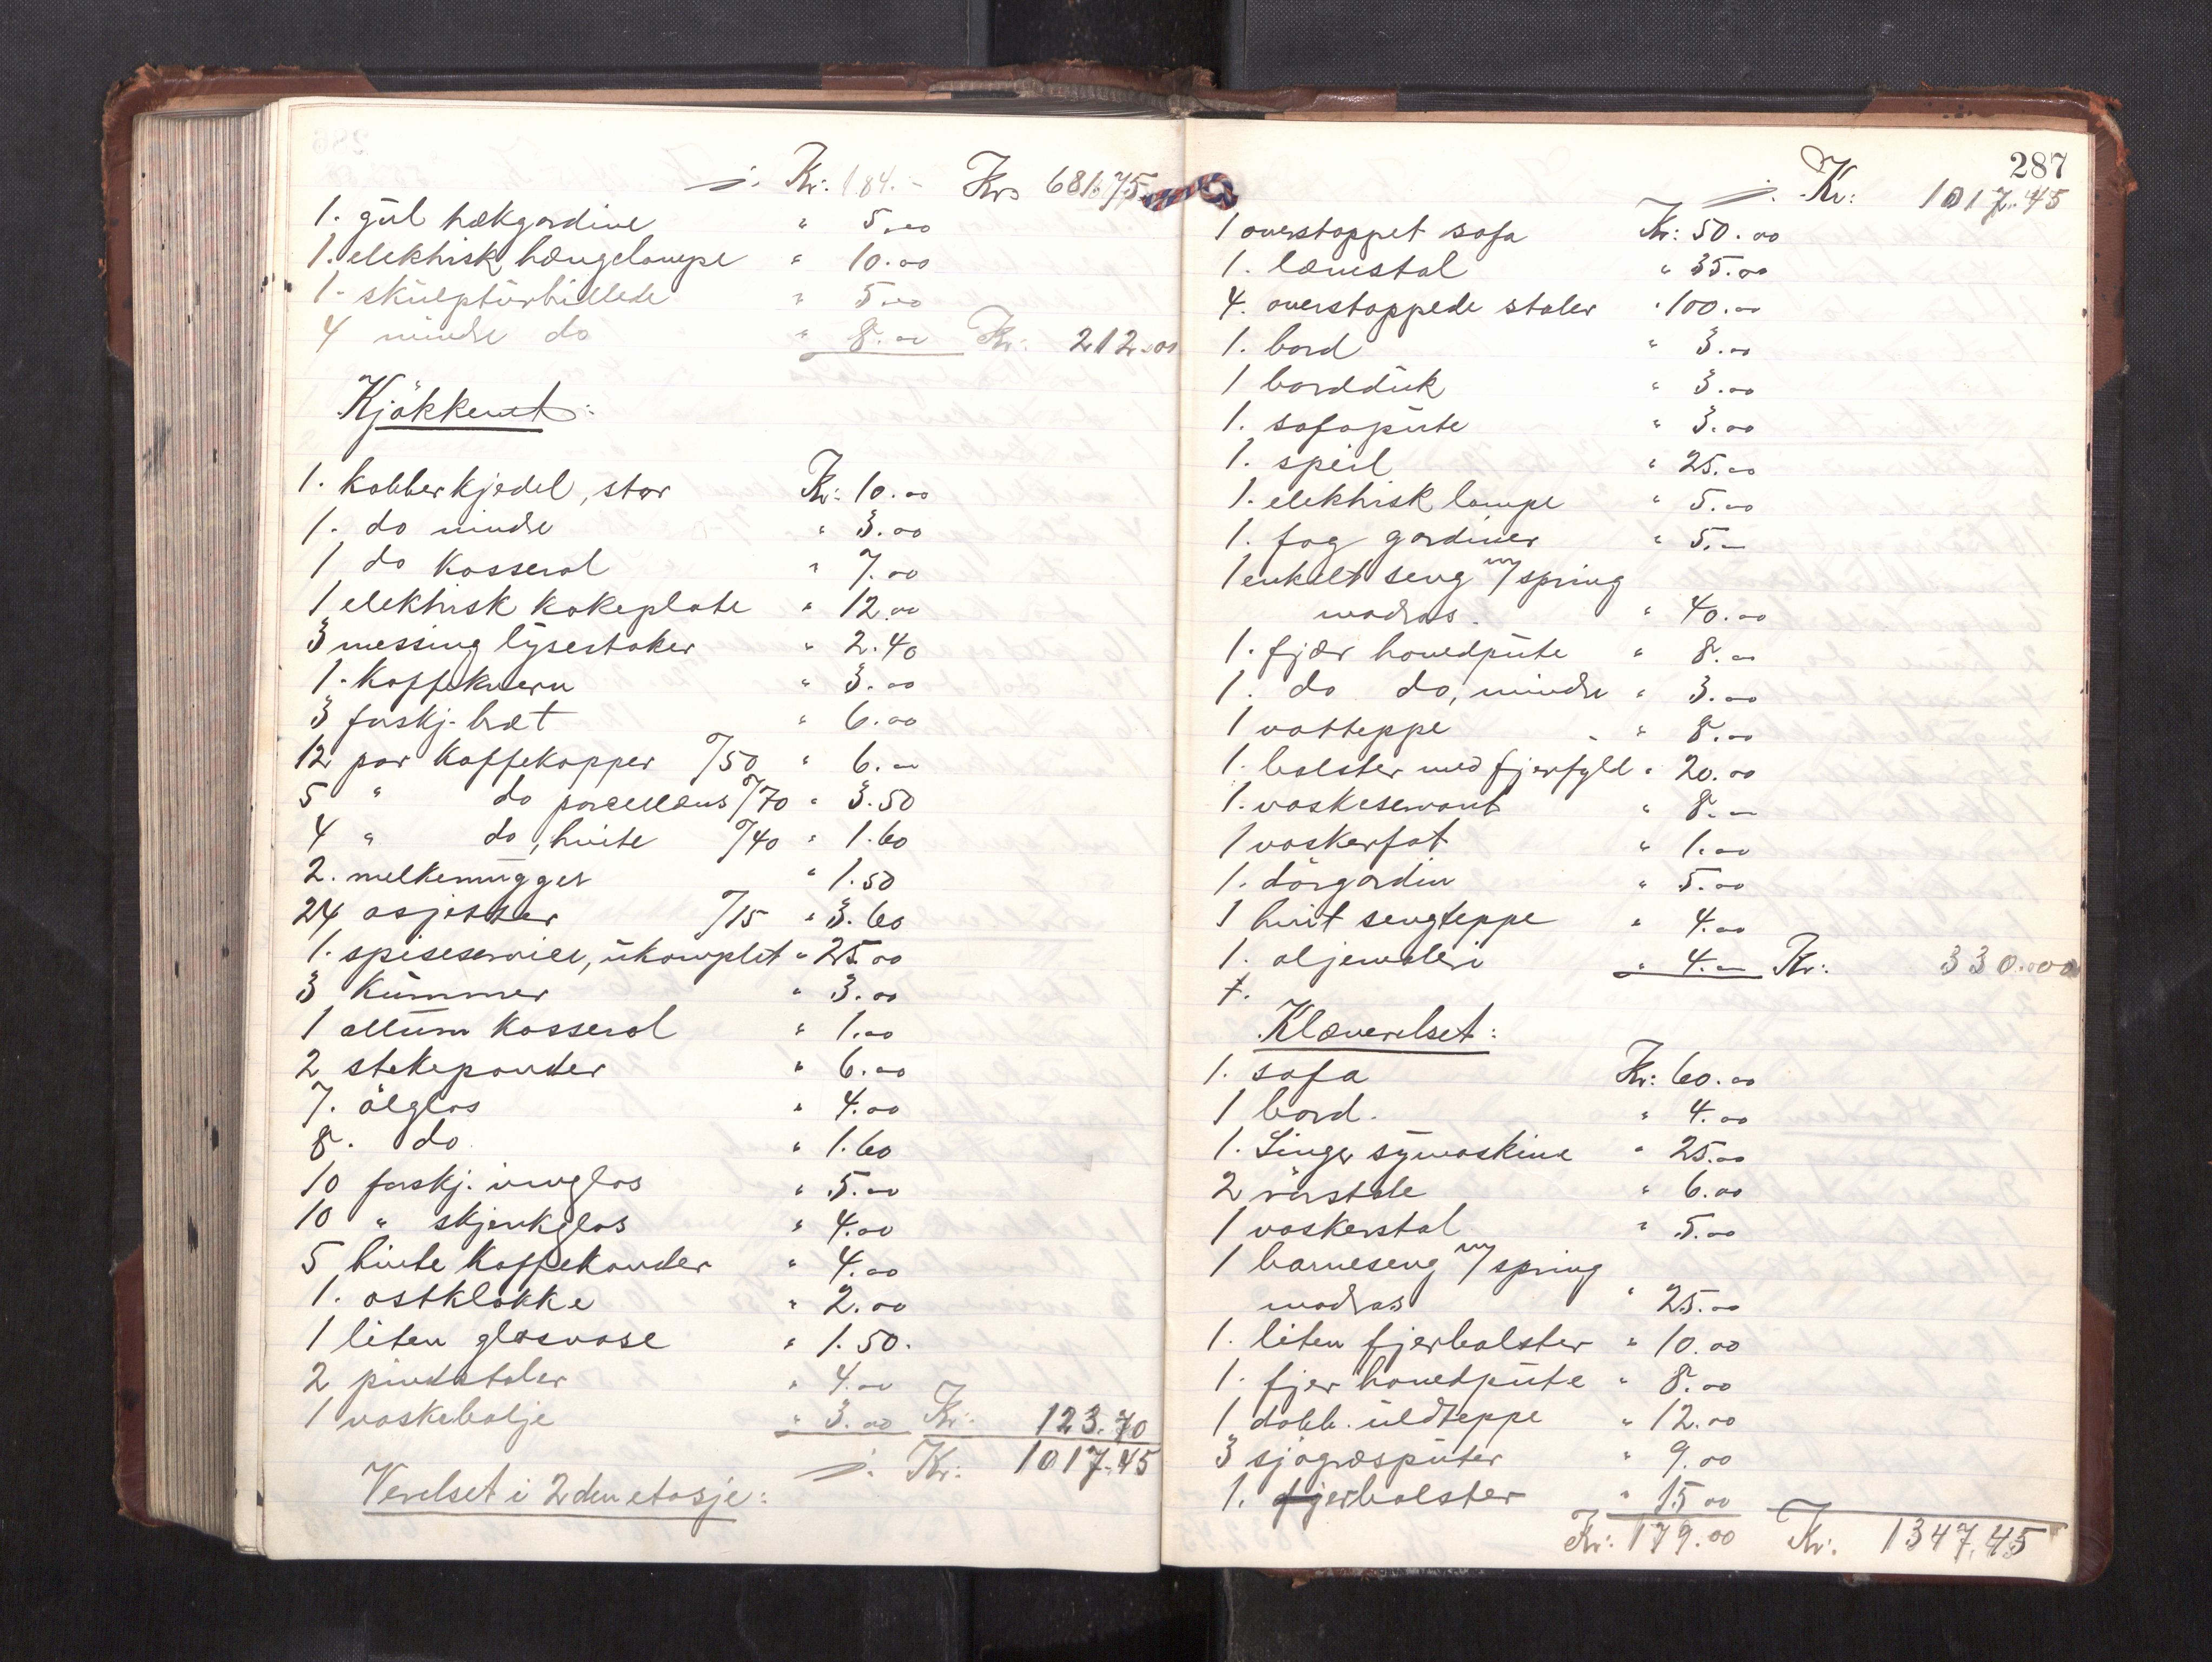 ÷ Kr: 184.- Kr 681.75
1. gul hekgardine " 5.00
1. elektrisk hængelampe " 10.00
1. skulpturbillede " 5.00
4 mindre do " 8.00 Kr: 212.00
Kjökkenet:
1. kobberkjedel, stor Kr: 10.00
1. do mindre " 3.00
1 do kasserol " 7.00
1 elektrisk kokeplate " 12.00
3 messing lysestaker " 2.40
1. kaffekvern " 3.00
3 forskj. bræt " 6.00
12 par kaffekopper °/50 " 6.00
5 " do porcellæns °/70 " 3.50
4 " do, hvite °/40 " 1.60
2. melkemugger " 1.50
24 asjetter °/15 " 3.60
1. spiseservice, ukomplet " 25.00
3 kummer " 3.00
1 allum kasserol " 1.00
2 stekepander " 6.00
7. ölglas " 4.00
8. do " 1.60
10 forskj. vinglas " 5.00
10 " skjenkglas " 4.00
5 hvite kaffekander " 4.00
1. ostklokke " 2.00
1 liten glasvase " 1.50.
2 pindstoler " 4.00
1 vaskebalje " 3.00 Kr: 123.70
÷ Kr: 1017.45
Verelset i 2den etasje:
287
÷ Kr: 1017.45
1 overstoppet sofa Kr: 50.00
1. lænestol " 35.00
4. overstoppede stoler " 100.00
1. bord " 3.00
1 bordduk " 3.00
1. sofapute " 3.00
1. speil " 25.00
1. elektrisk lampe " 5.00
1. fag gardiner " 5.00
1 enkelt seng m/spring
madras. " 40.00
1. fjær hovedpute " 8.00
1. do do, mindre " 3.00
1 vatteppe " 8.00
1. bolster med fjerfyld " 20.00
1. vaskeservant " 8.00
1 vaskerfat " 1.00
1. dörgardin " 5.00
1 hvit sengteppe " 4.00
1. oljemaleri " 4.00 Kr: 330.00
1.
Klæverelset:
1. sofa Kr: 60.00
1 bord. " 4.00
1. Singer symaskine " 25.00
2 rörstole " 6.00
1 vaskerstol " 5.00
1 barneseng m/spring
madras " 25.00
1. liten fjerbolster " 10.00
1. fjer hovedpute " 8.00
1 dobb. uldteppe " 12.00
3 sjögræsputer " 9.00
1. fjerbolster " 15.00
Kr: 179.00 Kr: 1347.45